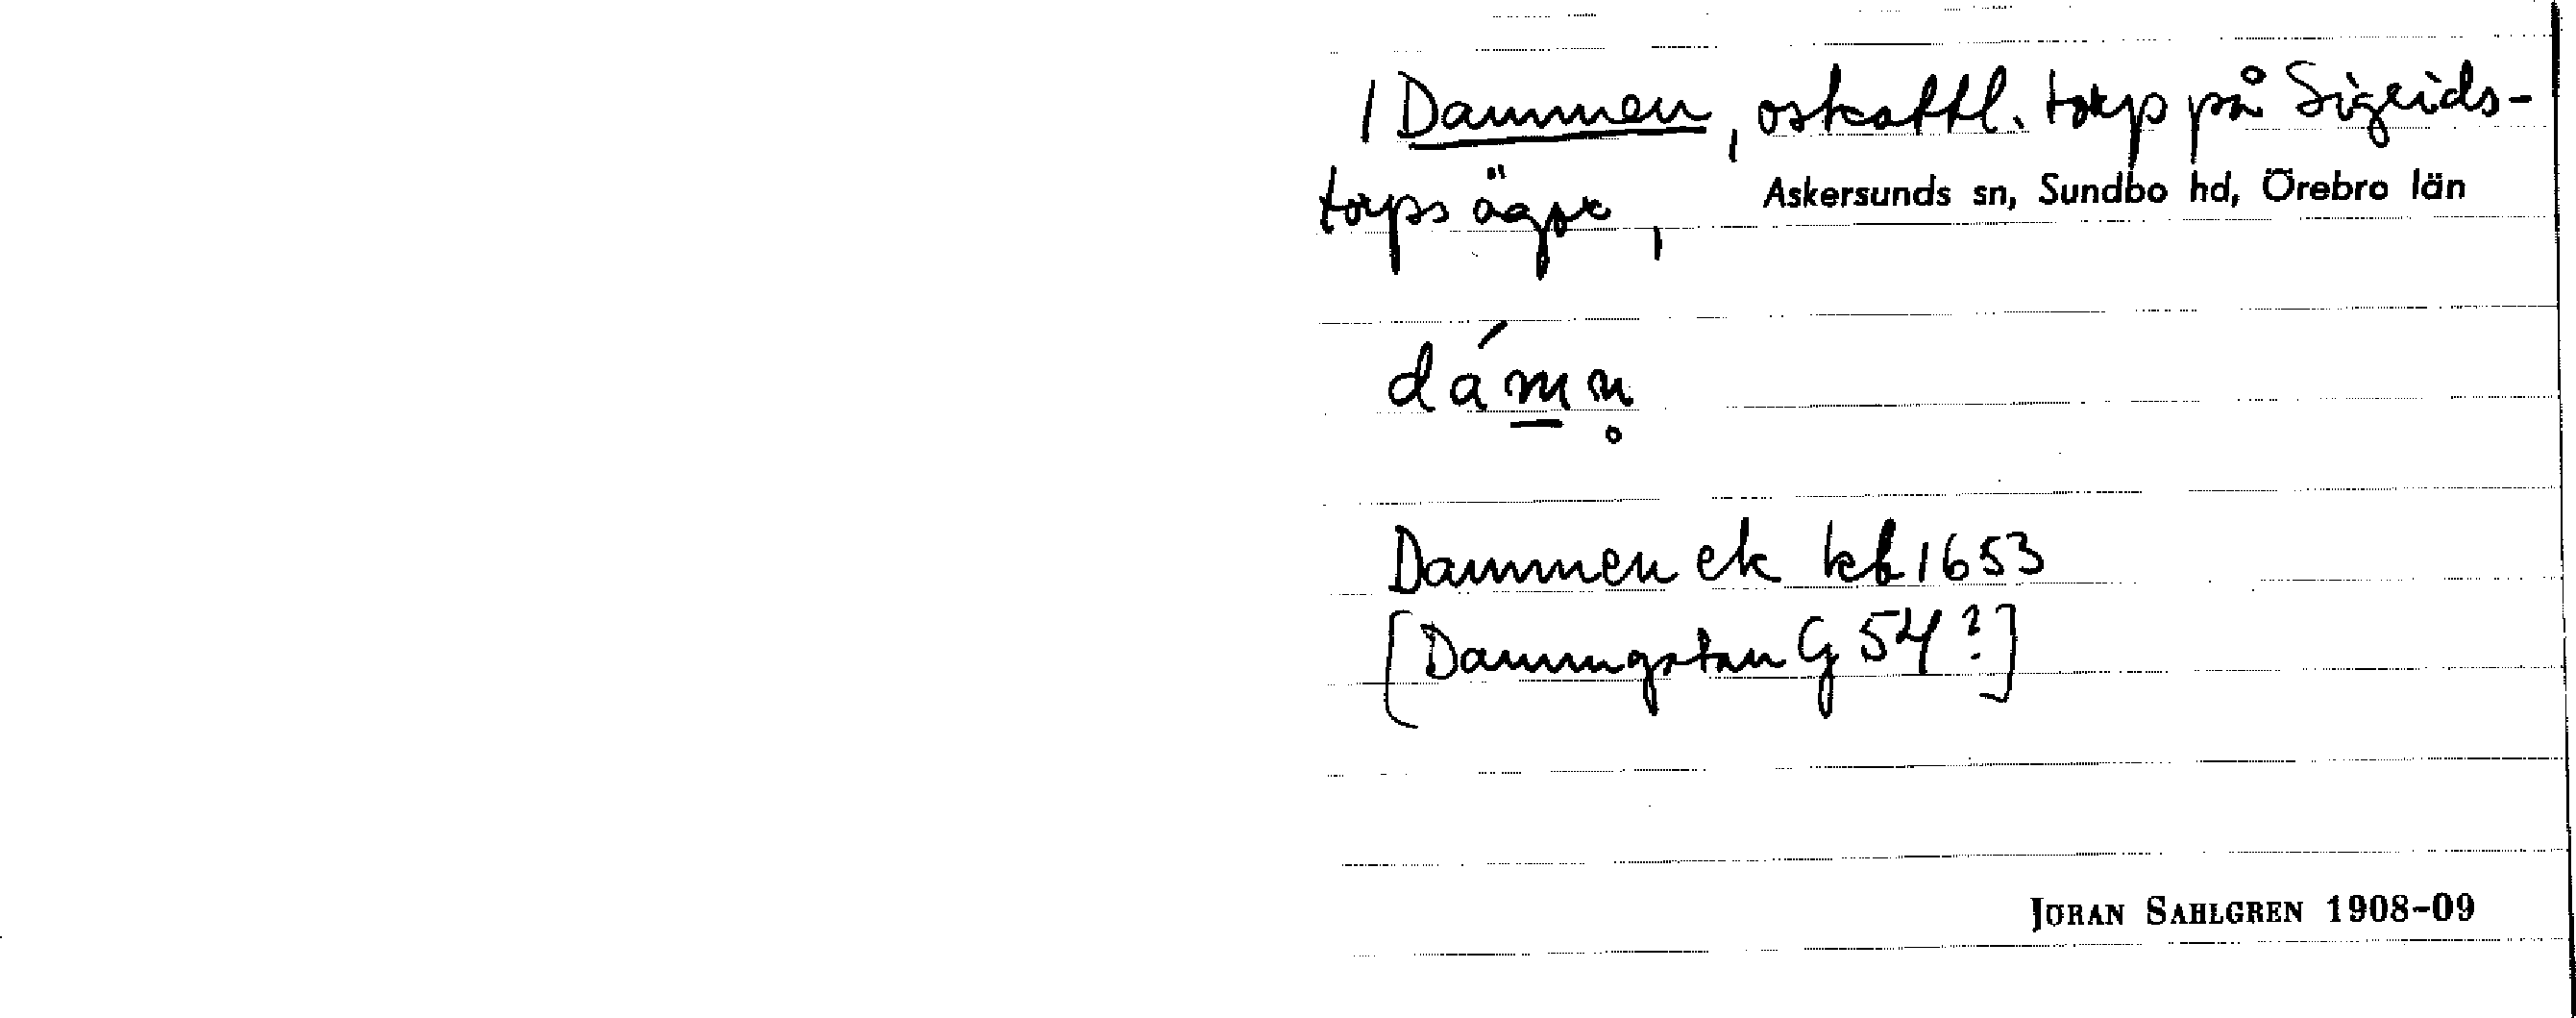 1 Dammen, oskattl. torp på Sigrids-
torps ägor, Askersunds sn, Sundbo hd, Örebro län
dám̲n̥
Dammen ek kb 1653
[Dammgstun G 54?]
JÖRAN SAHLGREN 1908-09